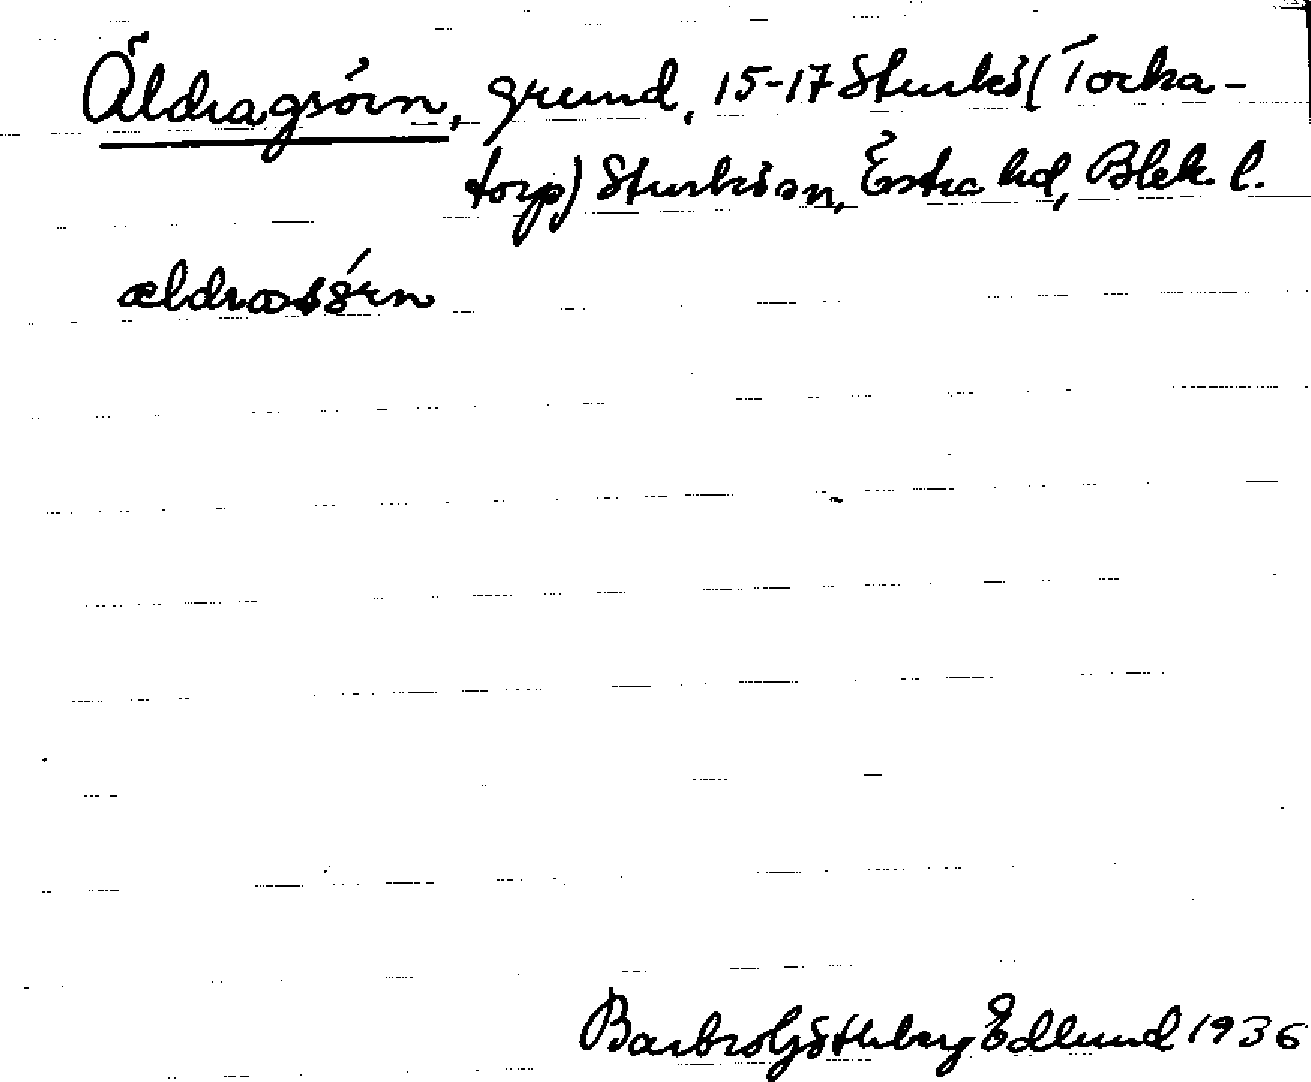 Äldragsörn, grund, 15-17 Sturkö (Torka-
torp) Sturkö sn, Östra hd, Blek. l.
ældrassörn
Barbro Göthberg Edlund 1936